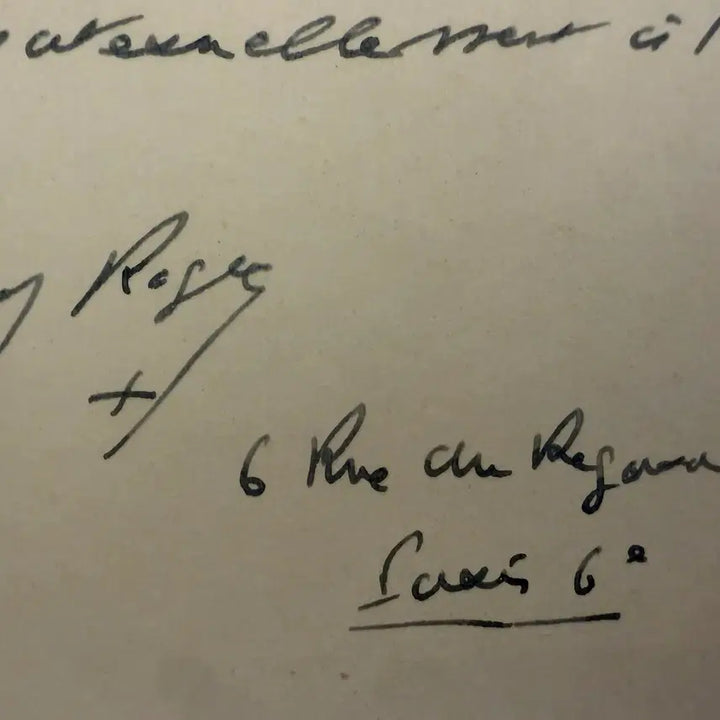 fraternellement à l
Roger
6 Rue du Regard
Paris 6e